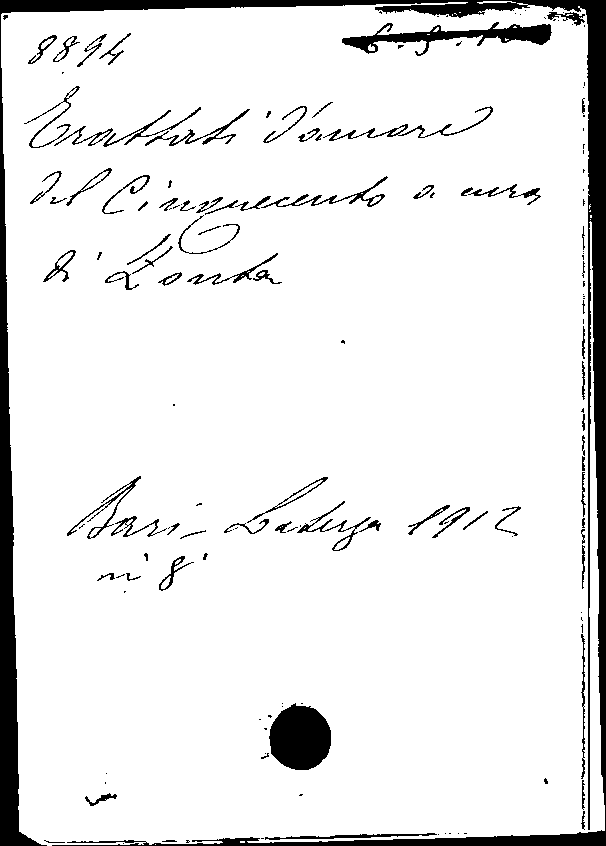 8894
6.9.10
Trattati d'amore
del Cinquecento a cura
di Zonta
Bari - Laterza 1912
in 8°